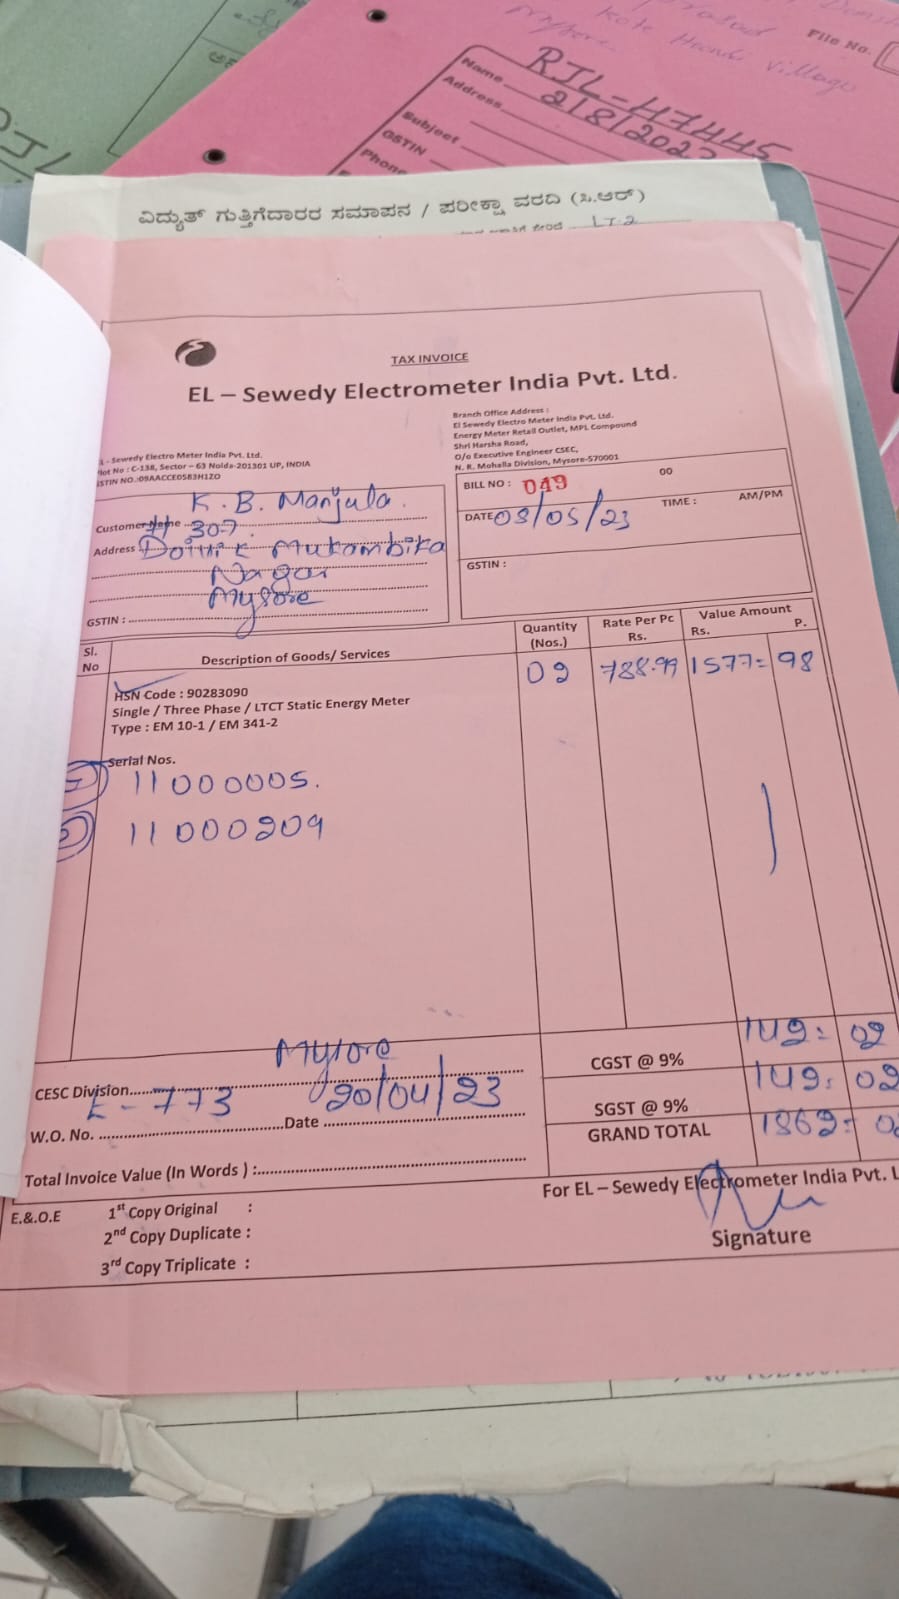 File No.
Kote Hundi Village
Mysore
Name RJL-47445
Address 2/8/2023
Subject
GSTIN
Phone
ವಿದ್ಯುತ್ ಗುತ್ತಿಗೆದಾರರ ಸಮಾಪನ / ಪರೀಕ್ಷಾ ವರದಿ (ಸಿ.ಆರ್)
LT-2
TAX INVOICE
EL – Sewedy Electrometer India Pvt. Ltd.
- Sewedy Electro Meter India Pvt. Ltd.
lot No : C-138, Sector – 63 Noida-201301 UP, INDIA
STIN NO.:09AACCE0583H1ZO
Branch Office Address :
El Sewedy Electro Meter India Pvt. Ltd.
Energy Meter Retail Outlet, MPL Compound
Shri Harsha Road,
O/o Executive Engineer CSEC,
N. R. Mohalla Division, Mysore-570001
Customer Name K. B. Manjula
Address : 307
Mukambika
Nagar
Mysore
GSTIN :
BILL NO : 049 00
DATE 03/05/23 TIME : AM/PM
GSTIN :
Sl. No Description of Goods/ Services Quantity (Nos.) Rate Per Pc Rs. Value Amount Rs. P.
02 788.99 1577= 98
HSN Code : 90283090
Single / Three Phase / LTCT Static Energy Meter
Type : EM 10-1 / EM 341-2
Serial Nos.
11000005.
11000209
CGST @ 9% 142= 02
SGST @ 9% 142= 02
GRAND TOTAL 1862=
CESC Division Mysore
W.O. No. E-773 Date 20/04/23
Total Invoice Value (In Words ) :
For EL – Sewedy Electrometer India Pvt. L
Signature
E.&.O.E 1st Copy Original :
2nd Copy Duplicate :
3rd Copy Triplicate :